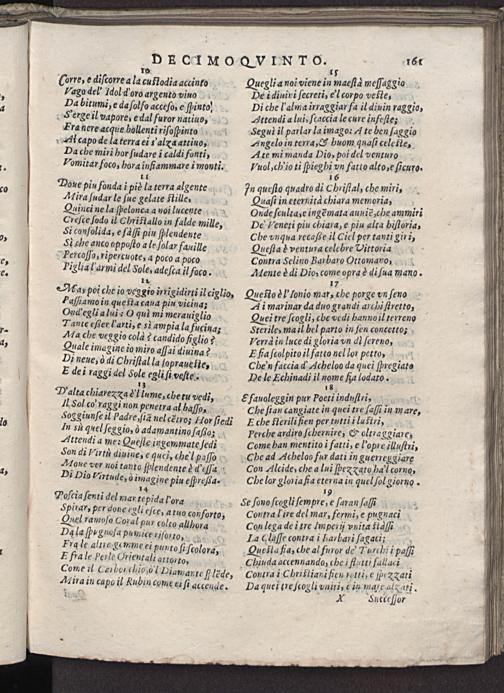 DECIMOQVINTO. 161
10
Corre, e discorre a la custodia accinto
Vago del' Idol d'oro argento viuo
Da bitumi, e da solfo acceso, e spinto
S'erge il vapore, e dal furor natiuo,
Fra nere acque bollenti risospinto
Al capo de la terra ei s'alza attino,
Da che miri hor sudare i caldi fonti,
Vomitar foco, hora infiammare i monti.
11
Doue piu fonda i piè la terra algente
Mira sudar le sue gelate stille,
Quinci ne la spelonca a noi lucente
Cresce sodo il Christallo in falde mille,
Si consolida, e fassi piu splendente
Sì che anco opposto a le solar fauille
Percosso, ripercuote, a poco a poco
Piglia l'armi del Sole, adesca il foco.
12
Mas poi che io veggio irrigidirti il ciglio,
Passiamo in questa caua piu vicina;
Ond'egli a lui: O quì mi merauiglio
Tante esser l'arti, e sì ampia la fucina;
Ma che veggio colà? candido figlio?
Quale imagine io miro assai diuina?
Di neue, ò di Christal la soprauesle,
E de i raggi del Sole egli si veste.
13
D'alta chiarezza è'l lume, che tu vedi,
Il Sol co' raggi non penetra al basso,
Soggiunse il Padre, stà nel cẽtro; Hor siedi
In sù quel seggio, ò adamantino sasso;
Attendi a me: Queste ingemmate sedi
Son di Virtù diuine, e quei, che'l passo
Moue ver noi tanto splendente è d'essa
Di Dio Virtude, ò imagine piu espressa.
14
Poscia senti del mar tepida l'ora
Spirar, per done egli esce, a tuo conforto,
Quel ramoso Coral pur colto allhora
Da la spugnosa pumice risorto,
Fra le altre gemme ei punto si scolora,
E fra le Perle Orientali attorto,
Come il Carbonchio, ò'l Diamante splẽde,
Mira in capo il Rubin come ei si accende.
15
Quegli a noi viene in maestà messaggio
De i diuini secreti, e'l corpo veste,
Di che l'alma irraggiar fa il diuin raggio,
Attendi a lui, scaccia le cure infeste;
Seguì il parlar la imago: A te ben saggio
Angelo in terra, & huom quasi celeste,
A te mi manda Dio, poi del venturo
Vuol, ch'io ti spieghi vn fatto alto, e sicuro.
16
In questo quadro di Christal, che miri,
Quasi in eternità chiara memoria,
Onde sculta, e ingẽmata auuiẽ, che ammiri
De' Veneti piu chiara, e piu alta historia,
Che vnqua recasse il Ciel per tanti giri,
Questa è ventura celebre Vittoria
Contra Selino Barbaro Ottomano,
Mente è di Dio, come opra è di sua mano.
17
Questo è l'Ionio mar, che porge vn seno
A i marinar da duo grandi archi stretto,
Quei tre scogli, che vedi hanno il terreno
Sterile, ma il bel parto in sen concetto;
Verrà in luce di gloria vn dì sereno,
E fia scolpito il fatto nel lor petto,
Che'n faccia d'Acheloo da quei spregiato
De le Echinadi il nome fia lodato.
18
E fauoleggin pur Poeti industri,
Che stan cangiate in quei tre sassi in mare,
E che sterili sien per tutti i lustri,
Perche ardiro schernire, & oltraggiare,
Come han mentito i fatti, e l'opre illustri,
Che ad Acheloo fur dati in guerreggiare
Con Alcide, che a lui spezzato ha'l corno,
Che lor gloria fia eterna in quel sol giorno.
19
Se sono scogli sempre, e saran sassi
Contra l'ire del mar, fermi, e pugnaci
Con lega de i tre Imperij vnita stassi
La Classe contra i barbari sagaci;
Questa fia, che al furor de' Turchi i passi
Chiuda accennando, che i flutti fallaci
Contra i Christiani sien rotti, e spezzati
Da quei tre scogli vniti, e in mare alzati.
X Successor